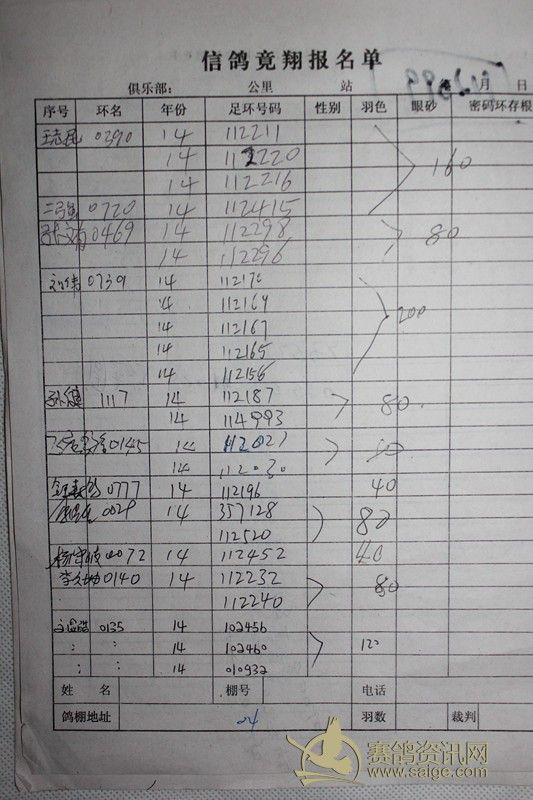 信鸽竟翔报名单
俱乐部： 公里 站 年 月 日
序号 环名 年份 足环号码 性别 羽色 眼砂 密码环存根
0390 14 112211
14 112220
14 112216 160
0720 14 112415
0469 14 112298 80
14 112296
0739 14 112170
14 112169
14 112167 200
14 112165
14 112156
1117 14 112187 80
14 114993
0145 14 112027
14 112030
0777 14 112196 40
0029 14 357128 80
112520
0072 14 112452 40
0140 14 112232 80
112240
0135 14 102456
14 102460 120
14 010932
姓 名 棚号 电话
鸽棚地址 24 羽数 裁判
赛鸽资讯网
www.saige.com